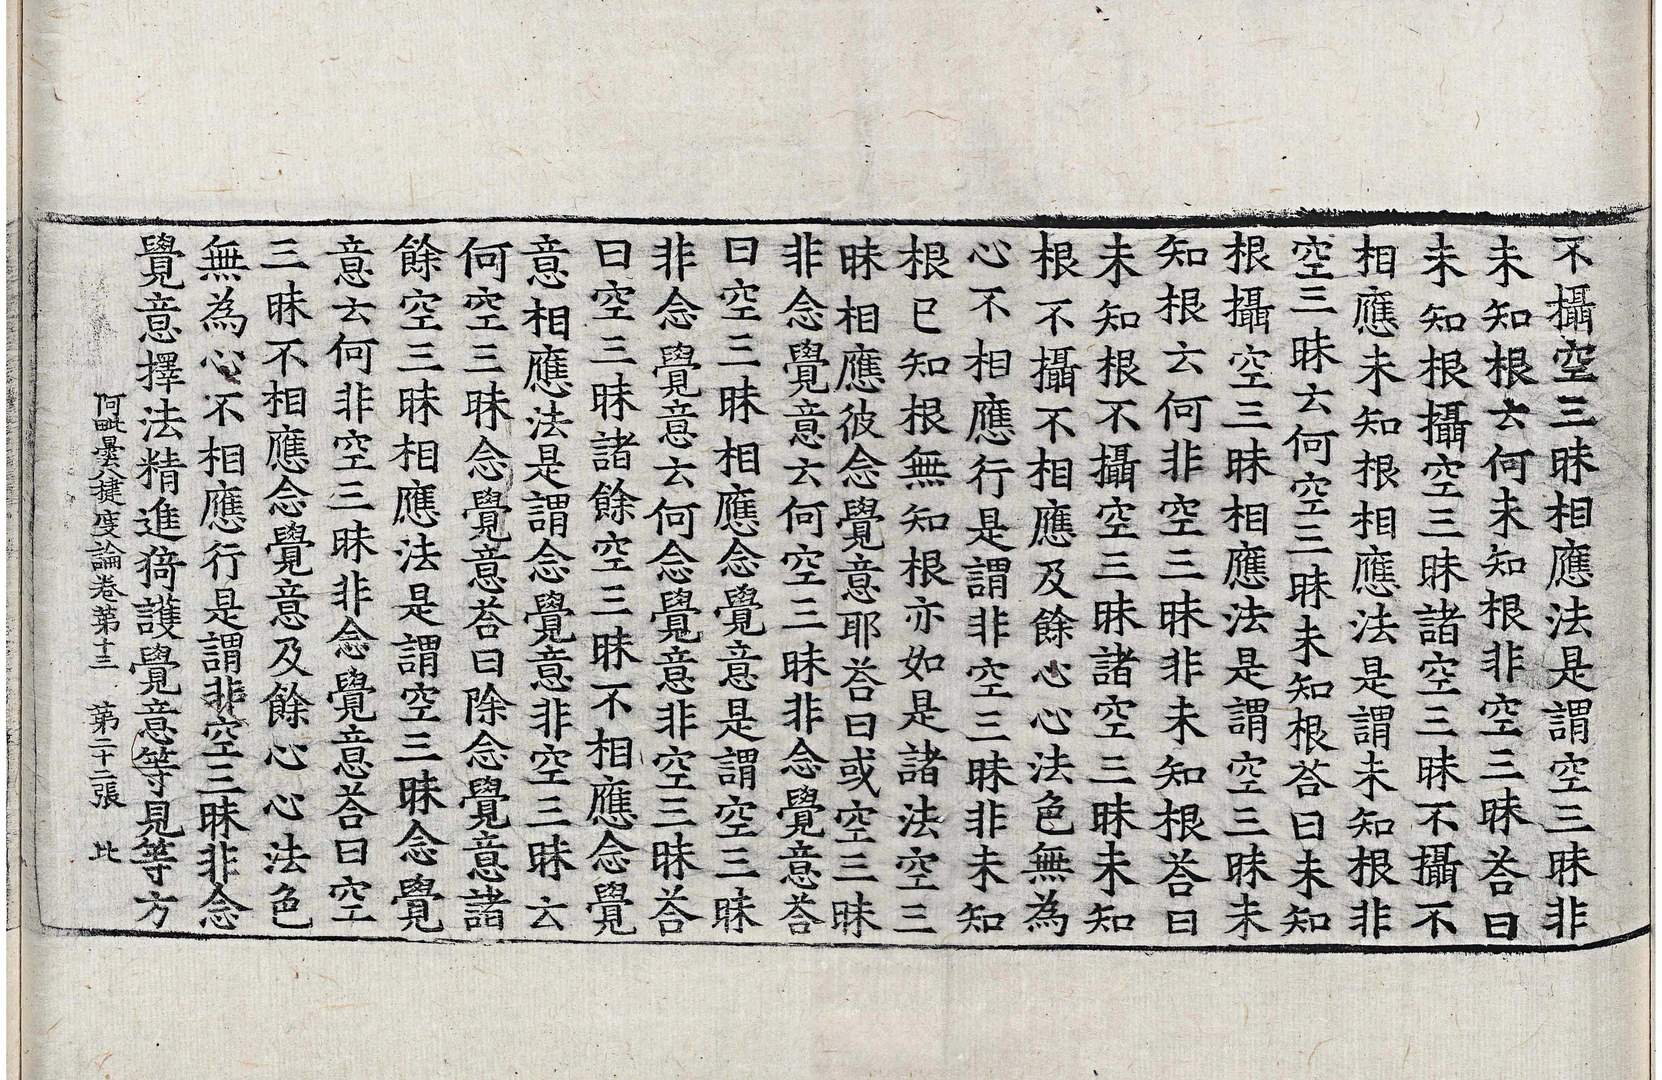 不攝空三昧相應法是謂空三昧非
未知根云何未知根非空三昧荅曰
未知根攝空三昧諸空三昧不攝不
相應未知根相應法是謂未知根非
空三昧云何空三昧未知根荅曰未知
根攝空三昧相應法是謂空三昧未
知根云何非空三昧非未知根荅曰
未知根不攝空三昧諸空三昧未知
根不攝不相應及餘心心法色無為
心不相應行是謂非空三昧非未知
根已知根無知根亦如是諸法空三
昧相應彼念覺意耶荅曰或空三昧
非念覺意云何空三昧非念覺意荅
曰空三昧相應念覺意是謂空三昧
非念覺意云何念覺意非空三昧荅
曰空三昧諸餘空三昧不相應念覺
意相應法是謂念覺意非空三昧云
何空三昧念覺意荅曰除念覺意諸
餘空三昧相應法是謂空三昧念覺
意云何非空三昧非念覺意荅曰空
三昧不相應念覺意及餘心心法色
無為心不相應行是謂非空三昧非念
覺意擇法精進猗護覺意等見等方
阿毗曇八揵度論卷第十三 第二十二張 此